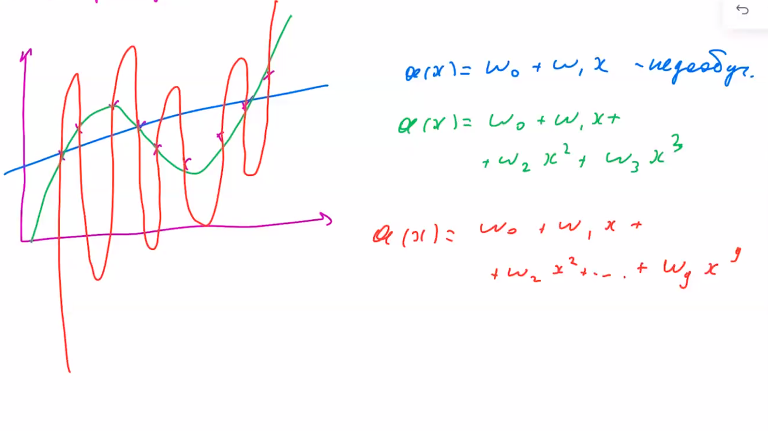 a(x) = w₀ + w₁ x - недообуч.
a(x) = w₀ + w₁ x +
+ w₂ x² + w₃ x³
a(x) = w₀ + w₁ x +
+ w₂ x² + ... + w₉ x⁹